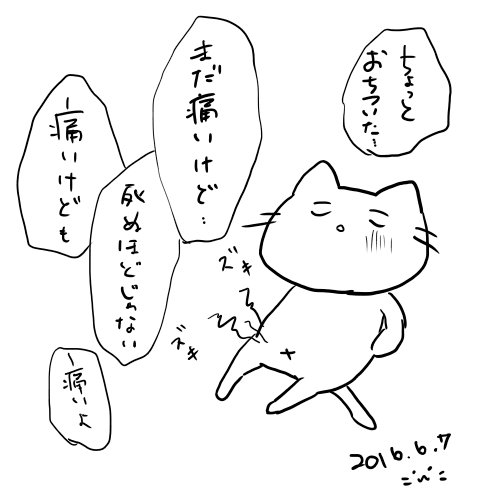 ちょっと
おちついた…
まだ痛いけど…
死ぬほどじゃない
ー痛いけども
ー痛いよ
ズキ
ズキ
2016.6.7